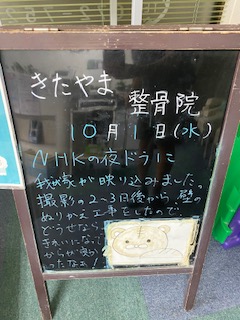 きたやま
整骨院
10月1日(水)
NHKの夜ドラに
我が家が映り込みました。
撮影の2～3日後から、壁の
ぬりかえ工事をしたので、
どうせなら
きれいになって
からが良か
ったなぁ!